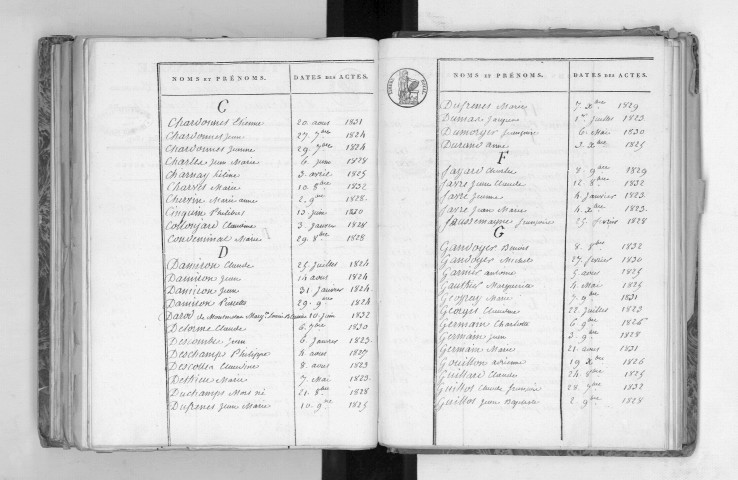 NOMS ET PRÉNOMS. DATES DES ACTES.
C
Chardonnet Etienne 20 aout 1831
Chardonnet Jean 27 7bre 1824
Chardonnet Jeanne 29 7bre 1824
Charles Jean Marie 6 juin 1828
Charnay hélène 3 avril 1825
Charvet Marie 10 8bre 1832
Chervin Marie anne 2 9bre 1828
Cinquin Philibert 13 juin 1830
Collonjard Claudine 3 janvier 1828
Condeminal Marie 29 8bre 1828
D
Damiron Claude 25 juillet 1824
Damiron Jean 14 aout 1824
Damiron Jean 31 janvier 1824
Damiron Pierrette 29 9bre 1824
Darod de Marie Louis 10 juin 1832
Delorme Claude 6 1830
Descombe Jean 6 janvier 1823
Deschamps Philippe 4 aout 1827
Descotter Claudine 8 aout 1823
Marie 7 Mai 1823
Duchamps Mort né 21 8bre 1828
Dufrenes Jean Marie 10 9bre 1825
NOMS ET PRÉNOMS. DATES DES ACTES.
Dufrenes Marie 7 Xbre 1829
Dumas Jacques 1er juillet 1823
Dumorger françoise 6 Mai 1830
Durand Anne 3 Xbre 1825
F
fayard 8 9bre 1829
favre Jean Claude 12 8bre 1832
favre Jeanne 4 janvier 1823
favre Jean Marie 4 Xbre 1823
faussemagne françoise 25 fevrier 1828
G
Gandoger Benoit 8 8bre 1832
Gandoger Michel 27 fevrier 1830
Garnier antoine 5 avril 1825
Gauthier Marguerite 4 Mai 1825
Geoffray Marie 7 9bre 1831
Georges Claudine 22 juillet 1823
Germain Charlotte 6 9bre 1826
Germain Jean 3 9bre 1828
Germain Marie 21 aout 1831
Gouillon 19 Xbre 1826
Guillard Claude 24 8bre 1825
Guillot Claude françois 28 7bre 1832
Guillot Jean Baptiste 2 9bre 1828